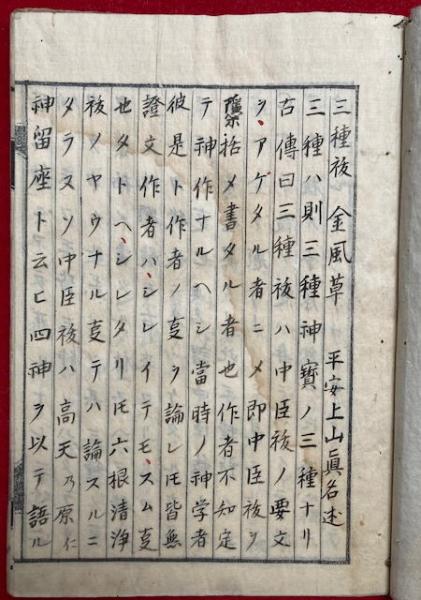 三種祓 金風草 平安上山眞名述
三種ハ則三種神寶ノ三種ナリ
古傳曰三種祓ハ中臣祓ノ要文
ヲ、アゲタル者ニメ即中臣祓ヲ
隱括メ書タル者也作者不知定
テ神作ナルヘシ當時ノ神学者
彼是ト作者ノ㕝ヲ論レ𪜈皆無
證文作者ハ、シレイテモ、スム㕝
也タトヘ、シレタリ𪜈六根清浄
祓ノヤウナル㕝テハ論スルニ
タラヌソ中臣祓ハ高天乃原仁
神留座ト云ヒ四神ヲ以テ語ル